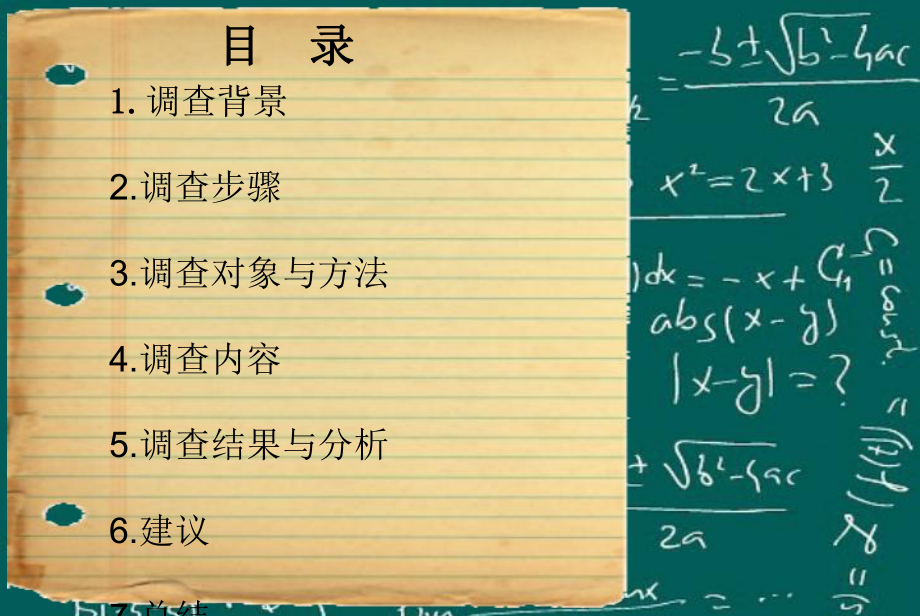 目 录
1. 调查背景
2.调查步骤
3.调查对象与方法
4.调查内容
5.调查结果与分析
6.建议
7.总结
-b±√b²-4ac
=
2a
x²=2x+3
x
2
)dx = -x + C₁
C₁=const.
abs(x-y)
|x-y|=?
± √b²-4ac
2a